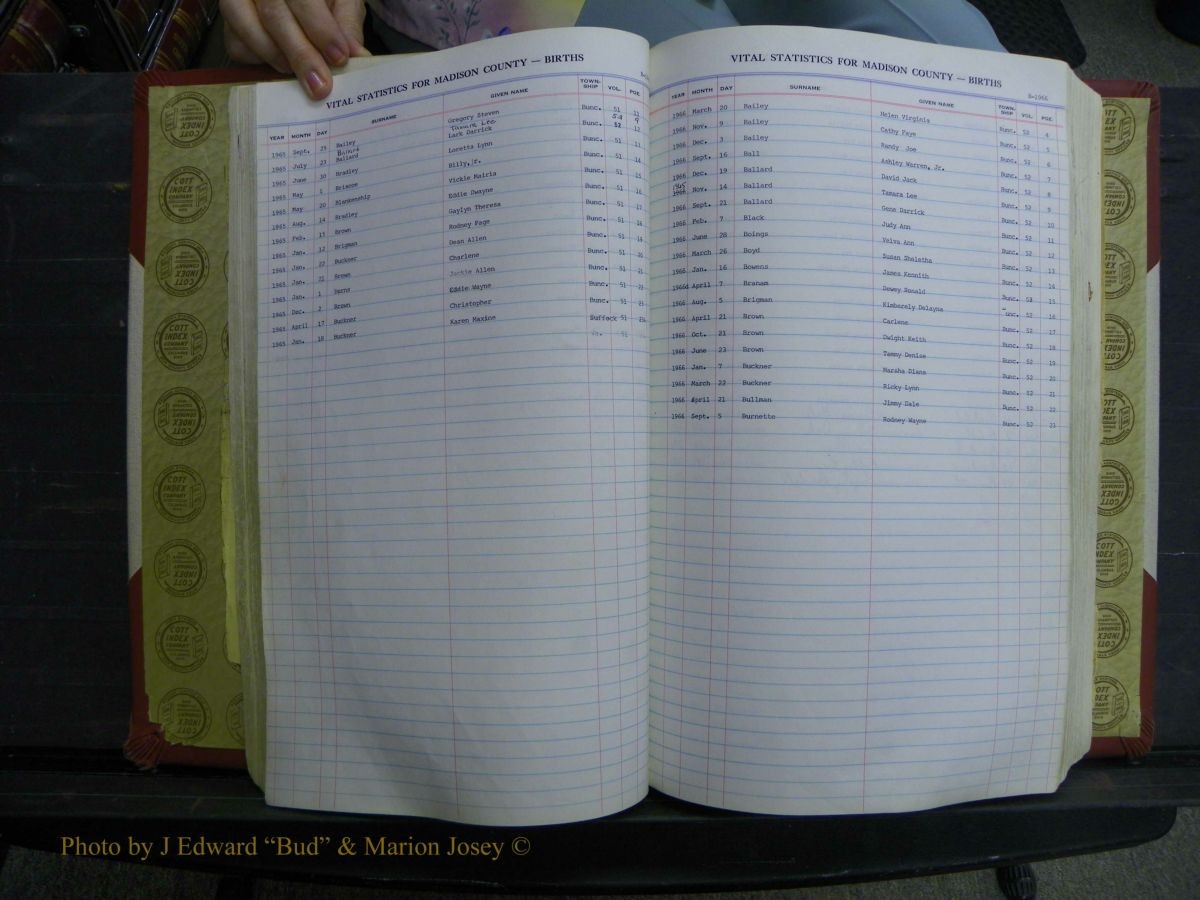 VITAL STATISTICS FOR MADISON COUNTY — BIRTHS
YEAR MONTH DAY SURNAME GIVEN NAME TOWNSHIP VOL. PGE.
1965 Sept. 25 Bailey Gregory Steven Bunc. 51 11
Ballard Tamara Lee 52 9
1965 July 23 Ballard Lark Darrick Bunc. 52 12
1965 June 30 Bradley Loretta Lynn Bunc. 51 13
1965 May 5 Briscoe Billy, Jr. Bunc. 51 14
1965 May 20 Blankenship Vickie Malria Bunc. 51 15
1965 Aug. 14 Bradley Eddie Dwayne Bunc. 51 16
1965 Feb. 13 Brown Gaylyn Theresa Bunc. 51 17
1965 Jan. 12 Brigman Rodney Page Bunc. 51 18
1965 Jan. 22 Buckner Dean Allen Bunc. 51 19
1965 Jan. 21 Brown Charlene Bunc. 51 20
1965 Jan. 1 Burns Jackie Allen Bunc. 51 21
1965 Dec. 2 Brown Eddie Wayne Bunc. 51 22
1965 April 17 Buckner Christopher Bunc. 51 23
1965 Jan. 18 Buckner Karen Maxine Suffock 51
VITAL STATISTICS FOR MADISON COUNTY — BIRTHS
B-1966
YEAR MONTH DAY SURNAME GIVEN NAME TOWNSHIP VOL. PGE.
1966 March 20 Bailey Helen Virginia Bunc. 52 4
1966 Nov. 9 Bailey Cathy Faye Bunc. 52 5
1966 Dec. 3 Bailey Randy Joe Bunc. 52 6
1966 Sept. 16 Ball Ashley Warren, Jr. Bunc. 52 7
1966 Dec. 19 Ballard David Jack Bunc. 52 8
1965 1966 Nov. 14 Ballard Tamara Lee Bunc. 52 9
1966 Sept. 21 Ballard Gene Darrick Bunc. 52 10
1966 Feb. 7 Black Judy Ann Bunc. 52 11
1966 June 28 Boings Velva Ann Bunc. 52 12
1966 March 26 Boyd Susan Sheletha Bunc. 52 13
1966 Jan. 16 Bowens James Kennith Bunc. 52 14
1966 April 7 Branam Dewey Ronald Bunc. 52 15
1966 Aug. 5 Brigman Kimberely Delayna Bunc. 52 16
1966 April 21 Brown Carlene Bunc. 52 17
1966 Oct. 21 Brown Dwight Keith Bunc. 52 18
1966 June 23 Brown Tammy Denise Bunc. 52 19
1966 Jan. 7 Buckner Marsha Diana Bunc. 52 20
1966 March 22 Buckner Ricky Lynn Bunc. 52 21
1966 April 21 Bullman Jimmy Dale Bunc. 52 22
1966 Sept. 5 Burnette Rodney Wayne Bunc. 52 23
COTT INDEX COMPANY
Photo by J Edward “Bud” & Marion Josey ©